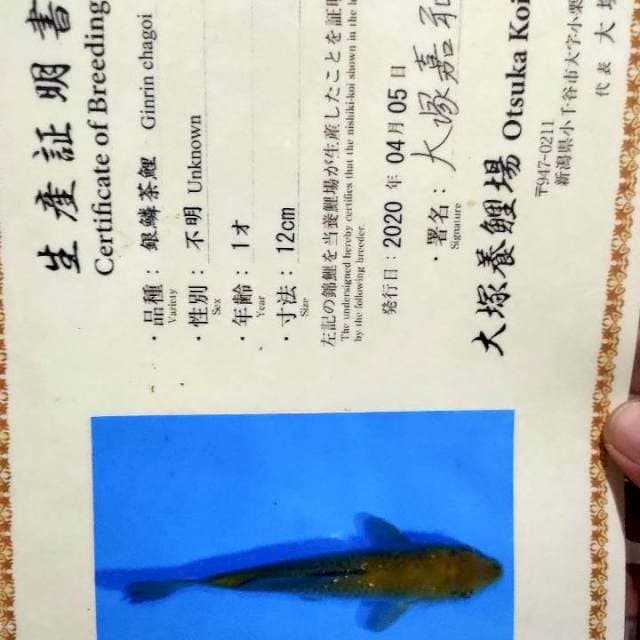 生産証明書
Certificate of Breeding
・品種： 銀鱗茶鯉 Ginrin chagoi
Variety
・性別： 不明 Unknown
Sex
・年齢： 1才
Year
・寸法： 12cm
Size
左記の錦鯉を当養鯉場が生産したことを証明
The undersigned hereby certifies that the nishiki-koi shown in the
by the following breeder.
発行日： 2020 年 04 月 05 日
・署名： 大塚嘉和
Signature
大塚養鯉場 Otsuka Koi
〒947-0211
新潟県小千谷市大字小栗
代表 大塚